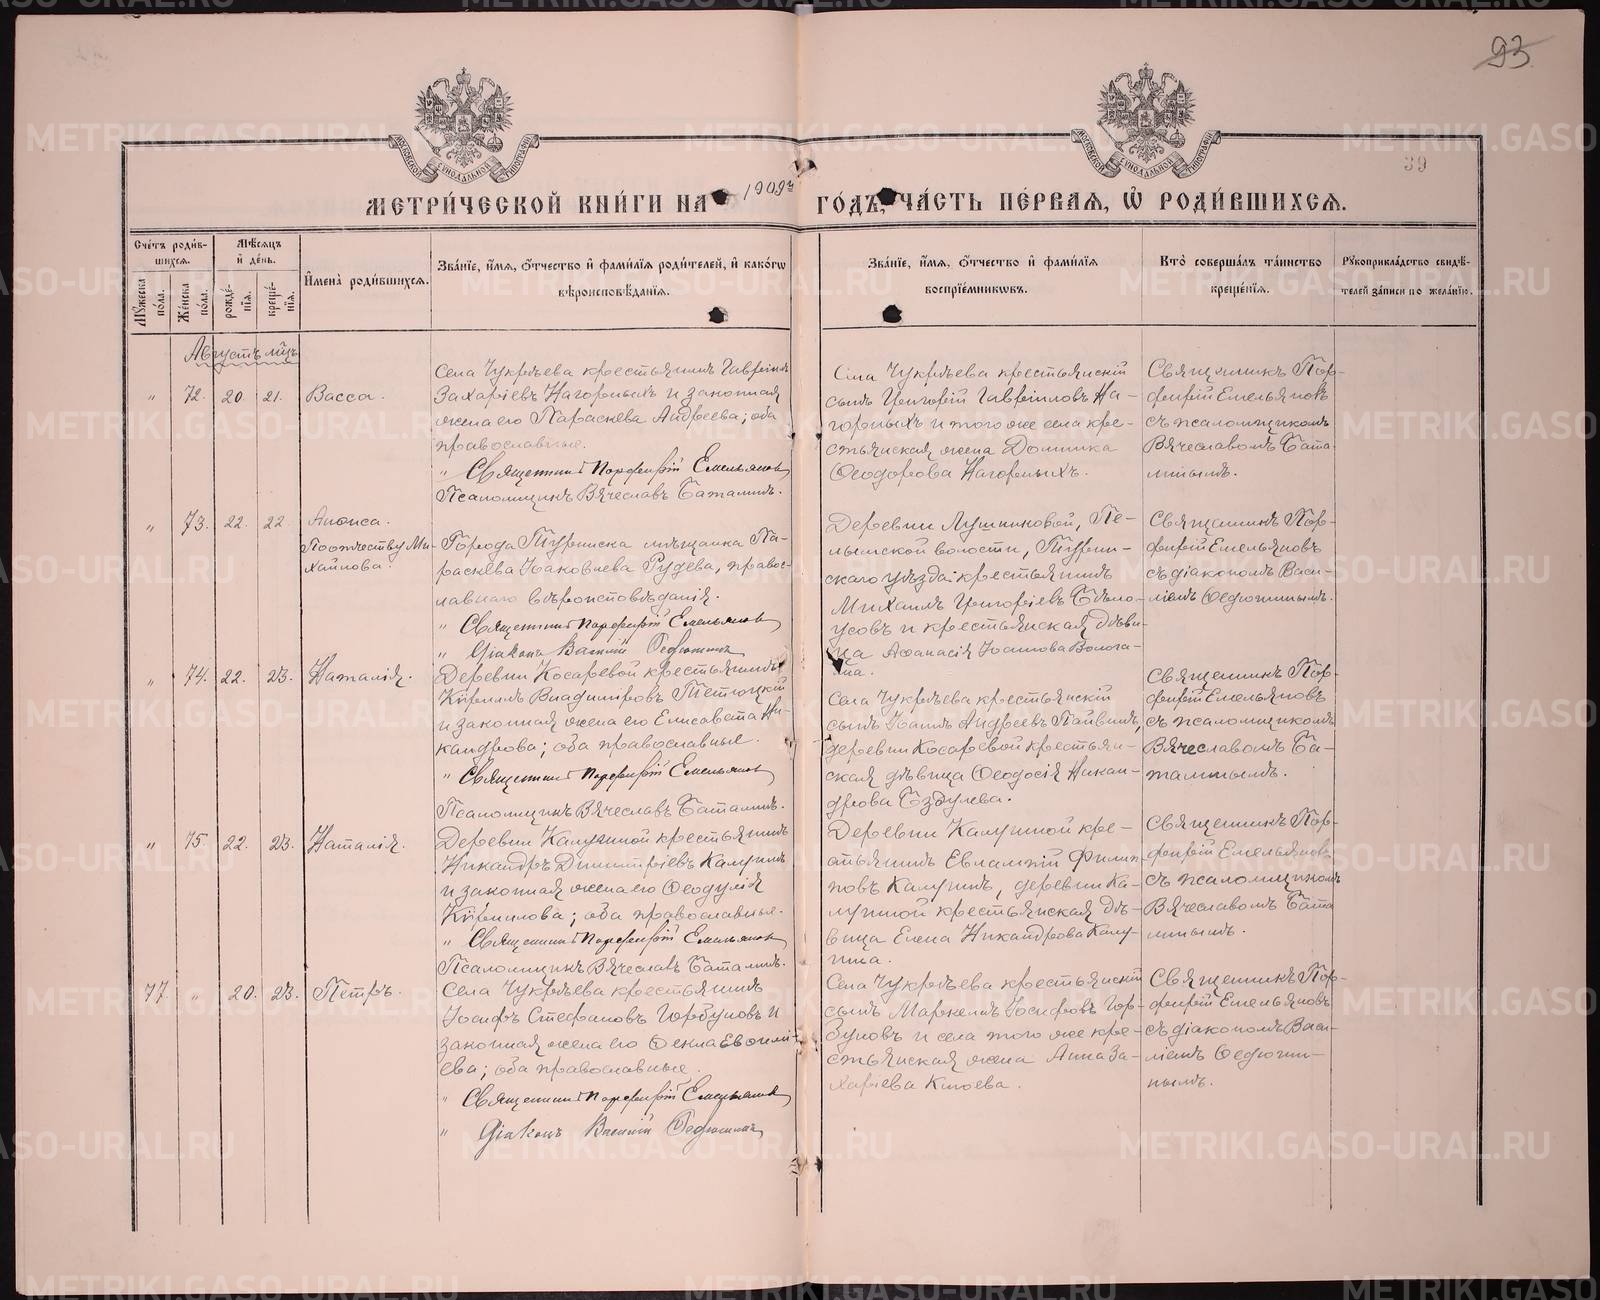 93
39
МЕТРИЧЕСКОЙ КНИГИ НА 1909 ГОДЪ, ЧАСТЬ ПЕРВАЯ, Ѡ РОДИВШИХСЯ.
Счетъ родив-
шихся.
Мужеска пола.
Женска пола.
Мѣсяцъ
и день.
рожде-
нія.
креще-
нія.
Имена родившихся.
Званіе, имя, отчество и фамилія родителей, и какогѡ
вѣроисповѣданія.
Званіе, имя, отчество и фамилія
воспріемникѡвъ.
Кто совершалъ таинство
крещенія.
Рукоприкладство свидѣ-
телей записи по желанію.
Августъ мцъ
„ 72. 20. 21. Васса.
Села Чукрѣева крестьянинъ Гавріилъ
Захаріевъ Нагорныхъ и законная
жена его Параскева Андреева; оба
православные.
„ Священникъ Порфирій Емельяновъ
Псаломщикъ Вячеславъ Баталинъ.
Села Чукрѣева крестьянскій
сынъ Григорій Гавріиловъ На-
горныхъ и того же села кре-
стьянская жена Домника
Ѳеодорова Нагорныхъ.
Священникъ Пор-
фирій Емельяновъ
съ псаломщикомъ
Вячеславомъ Бата-
линымъ.
„ 73. 22. 22. Анѳиса.
По отчеству Ми-
хайлова.
Города Туринска мѣщанка Па-
раскева Іаковлева Рудева, правос-
лавнаго вѣроисповѣданія.
„ Священникъ Порфирій Емельяновъ
„ Діаконъ Василій Ѳедюшинъ
Деревни Лушниковой, Пе-
лымской волости, Турин-
скаго уѣзда крестьянинъ
Михаилъ Григоріевъ Бѣло-
усовъ и крестьянская дѣви-
ца Аѳанасія Іоаннова Волога-
Священникъ Пор-
фирій Емельяновъ
съ діакономъ Васи-
ліемъ Ѳедюшинымъ.
„ 74. 22. 23. Наталія.
Деревни Косаревой крестьянинъ
Кириллъ Владиміровъ Тетюцкій
и законная жена его Елисавета Ни-
кандрова; оба православные.
„ Священникъ Порфирій Емельяновъ
Псаломщикъ Вячеславъ Баталинъ.
Села Чукрѣева крестьянскій
сынъ Іоаннъ Андреевъ Пайвинъ,
деревни Косаревой крестьян-
ская дѣвица Ѳеодосія Никан-
дрова Бздулева.
Священникъ Пор-
фирій Емельяновъ
съ псаломщикомъ
Вячеславомъ Ба-
талинымъ.
„ 75. 22. 23. Наталія.
Деревни Калугиной крестьянинъ
Никандръ Димитріевъ Калугинъ
и законная жена его Ѳеодулія
Кириллова; оба православные.
„ Священникъ Порфирій Емельяновъ
Псаломщикъ Вячеславъ Баталинъ.
Деревни Калугиной кре-
стьянинъ Евлампій Филип-
повъ Калугинъ, деревни Ка-
лугиной крестьянская дѣ-
вица Елена Никандрова Калу-
гина.
Священникъ Пор-
фирій Емельяновъ
съ псаломщикомъ
Вячеславомъ Бата
линымъ.
77. „ 20. 23. Петръ.
Села Чукрѣева крестьянинъ
Іосифъ Стефановъ Горбуновъ и
законная жена его Ѳекла Евѳимі-
ева; оба православные.
„ Священникъ Порфирій Емельяновъ
„ Діаконъ Василій Ѳедюшинъ
Села Чукрѣева крестьянскій
сынъ Маркеллъ Іосифовъ Гор-
буновъ и села того же кре-
стьянская жена Анна За-
харіева Клюева.
Священникъ Пор-
фирій Емельяновъ
съ діакономъ Васи-
ліемъ Ѳедюши-
нымъ.
METRIKI.GASO-URAL.RU